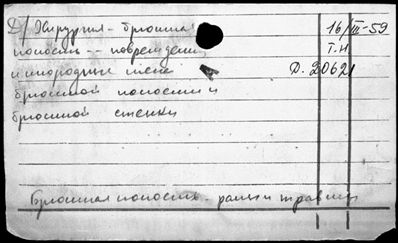 Д/ Хирургия - брюшная 16/III-59
полость -- поврежден. Т.Н
инородные тела Д. 20621
брюшной полости и
брюшной стенки
Брюшная полость - раны и травмы